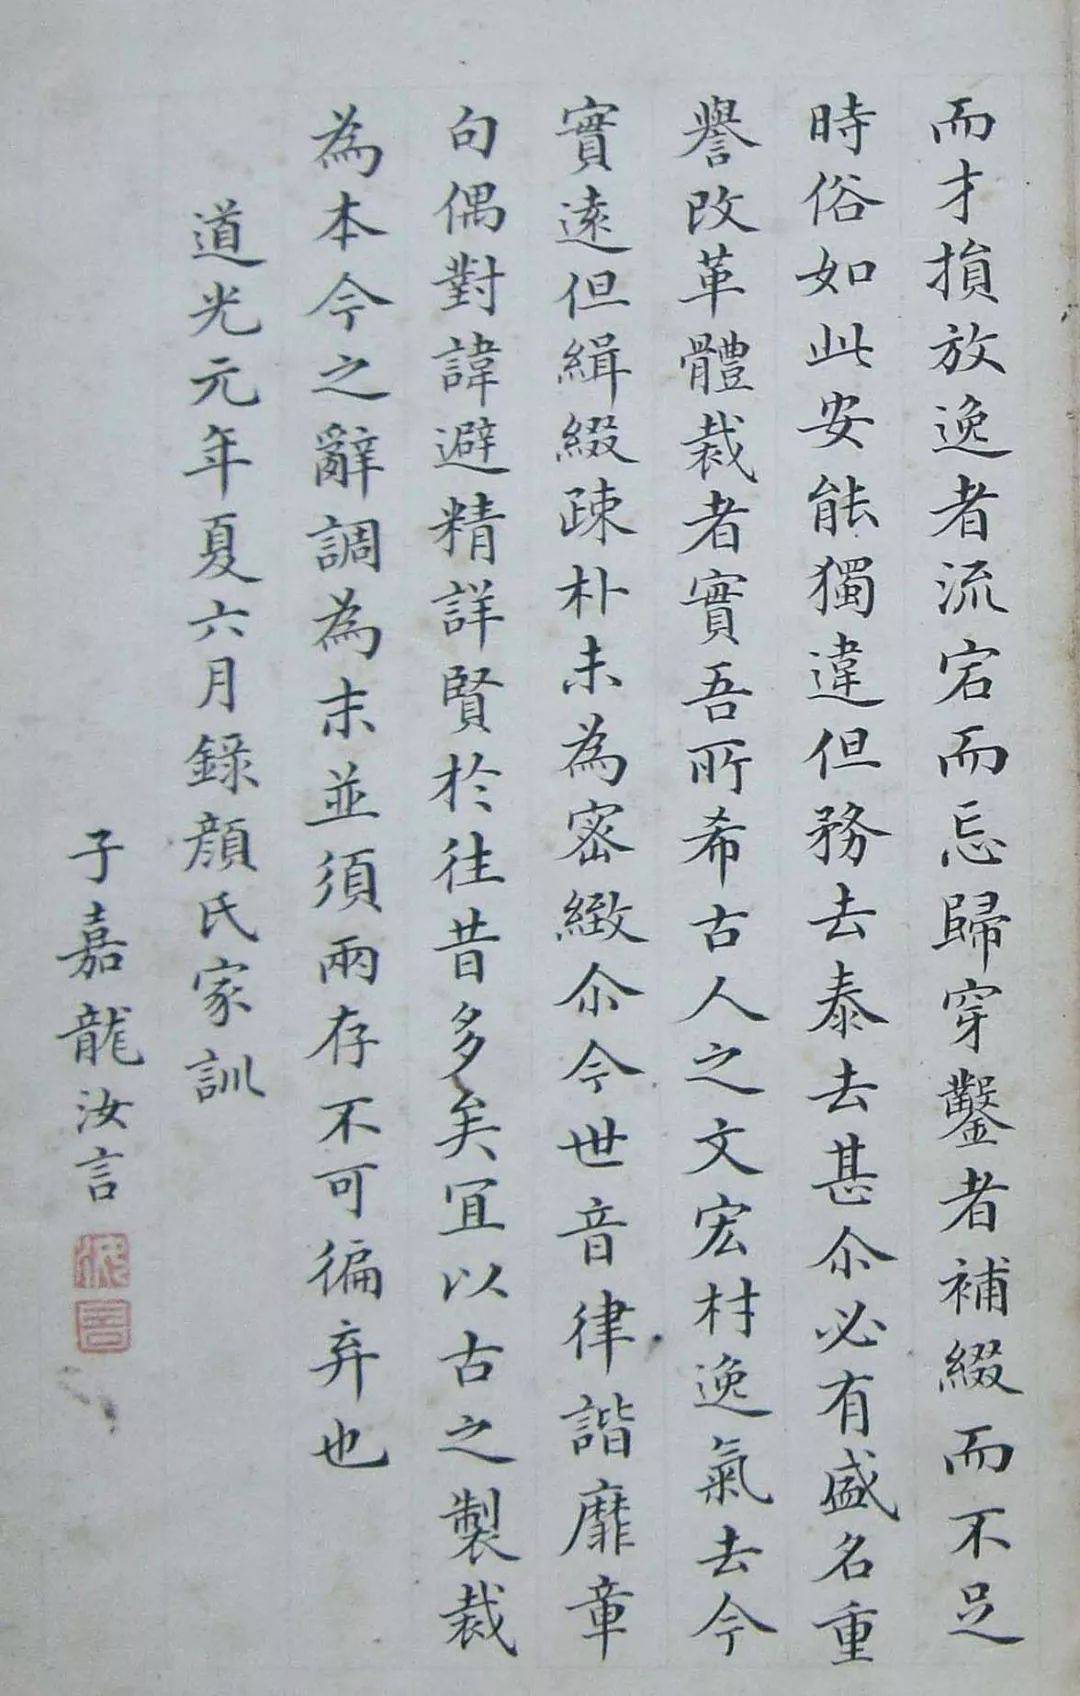 而才損放逸者流宕而忘歸穿鑿者補綴而不足
時俗如此安能獨違但務去泰去甚尒必有盛名重
譽改革體裁者實吾所希古人之文宏材逸氣去今
實遠但緝綴疎朴未為密緻尒今世音律諧靡章
句偶對諱避精詳賢於往昔多矣宜以古之製裁
為本今之辭調為末並須兩存不可徧弃也
道光元年夏六月錄顏氏家訓
子嘉龍汝言